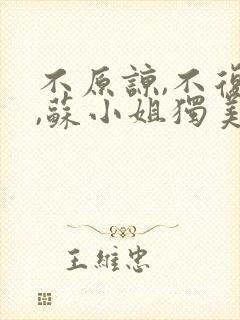 不原諒,不復
,蘇小姐獨美
王維忠